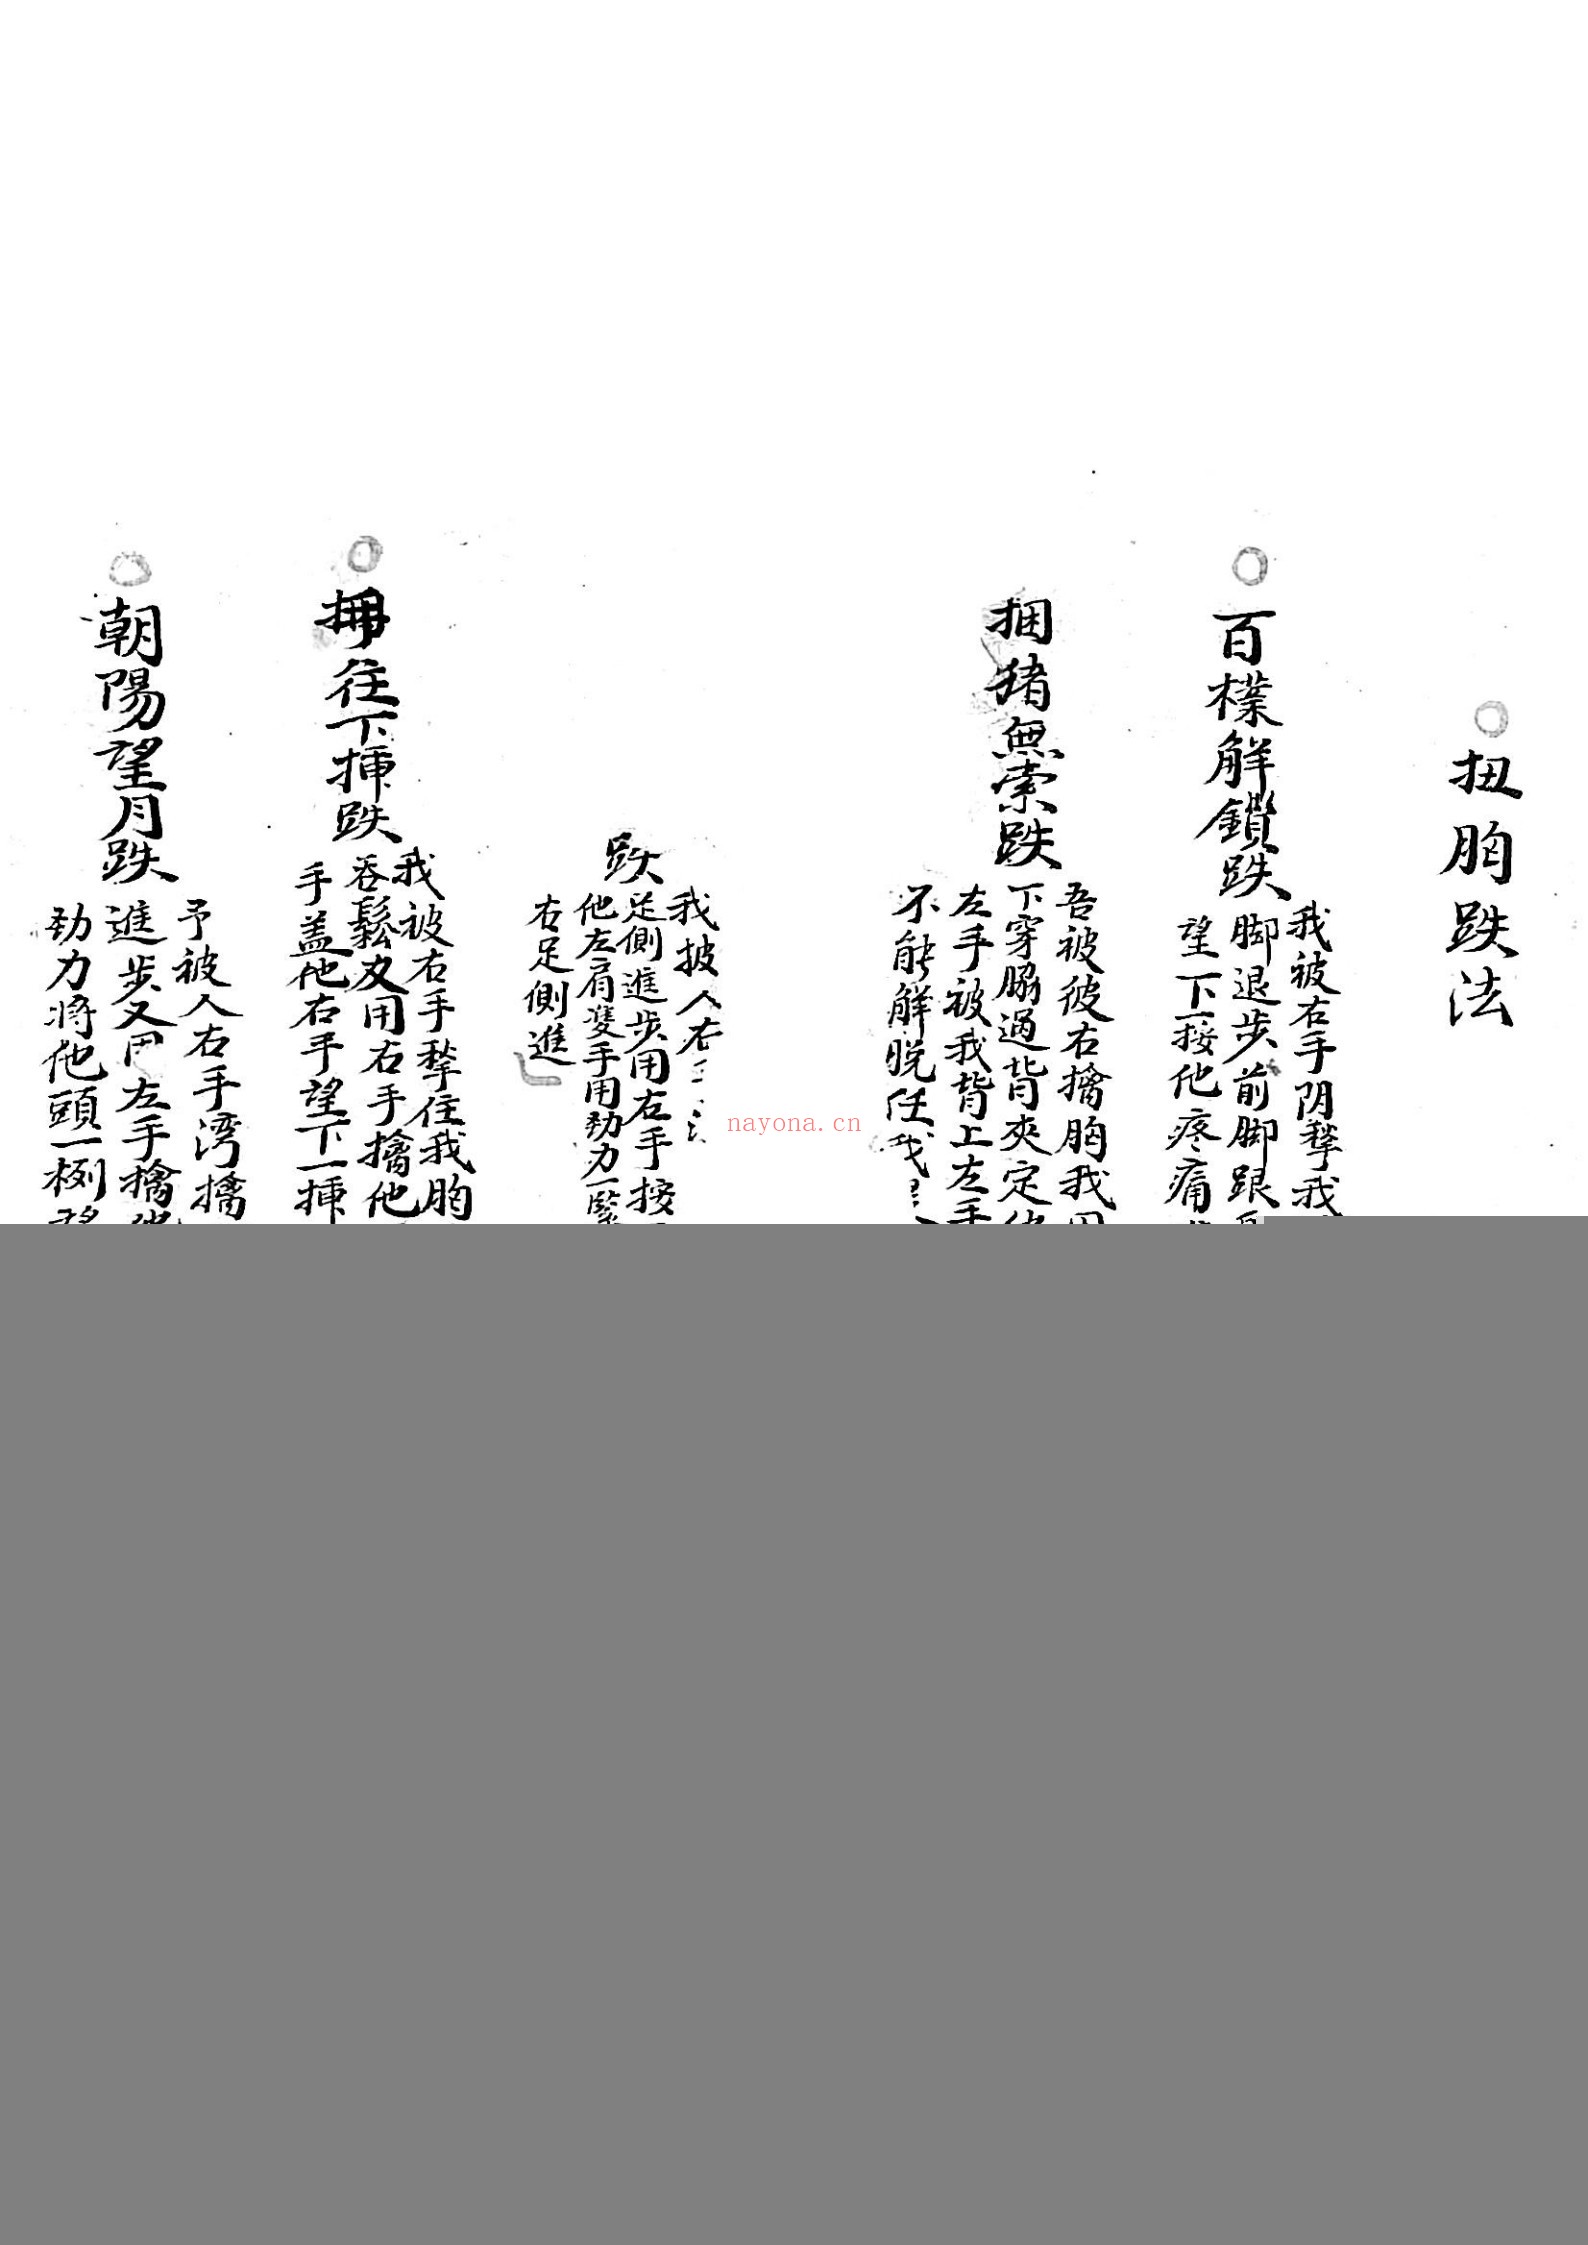 扭胸跌法
百樸解鎖跌
我被右手阴拏我
脚退步前脚跟
望下一按他疼痛
捆猪無索跌
吾被彼右擒胸我
下穿脇過背夾定
左手被我背上左手
不能解脱任我
跌
我披人右
足側進步用右手按
他左肩雙手用勁力一緊
右足側進
往下揷跌
我被右手拏住我胸
吞鬆又用右手擒他
手盖他右手望下一揷
朝陽望月跌
予被人右手湾擒
進步又用左手擒
劲力将他頭一挒
nayona.cn